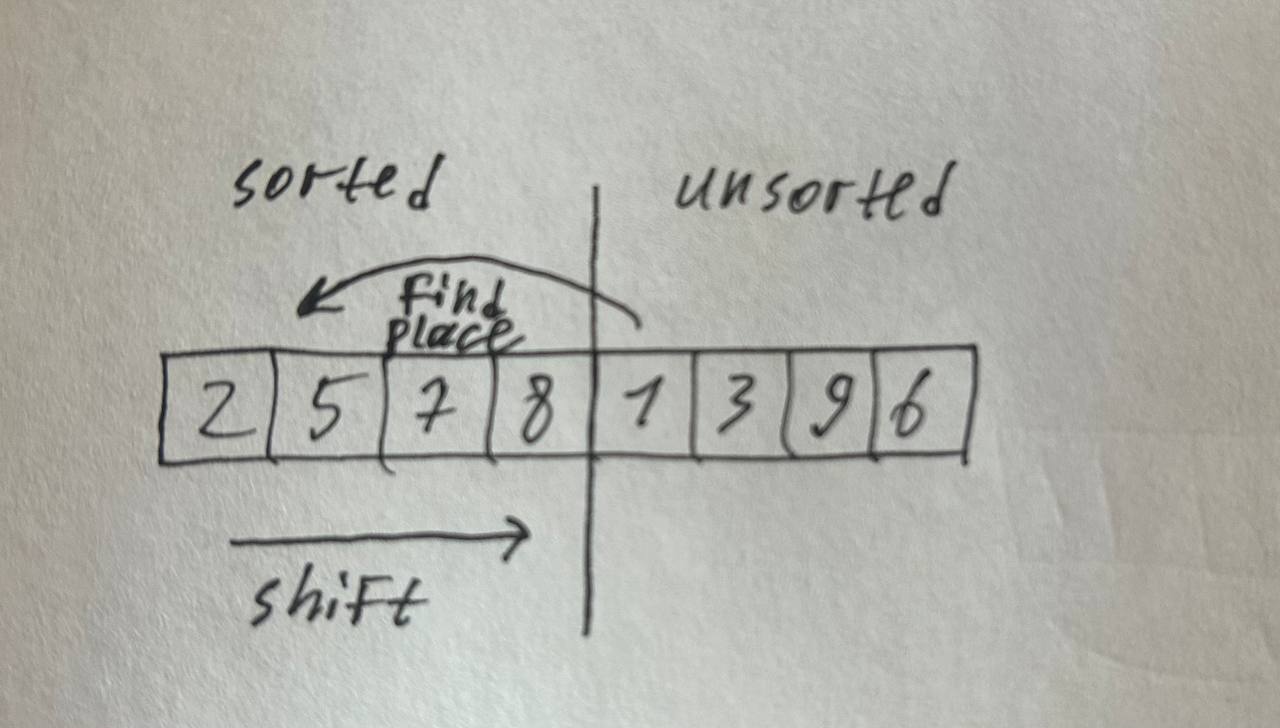 sorted unsorted
find
place
2 5 7 8 1 3 9 6
shift